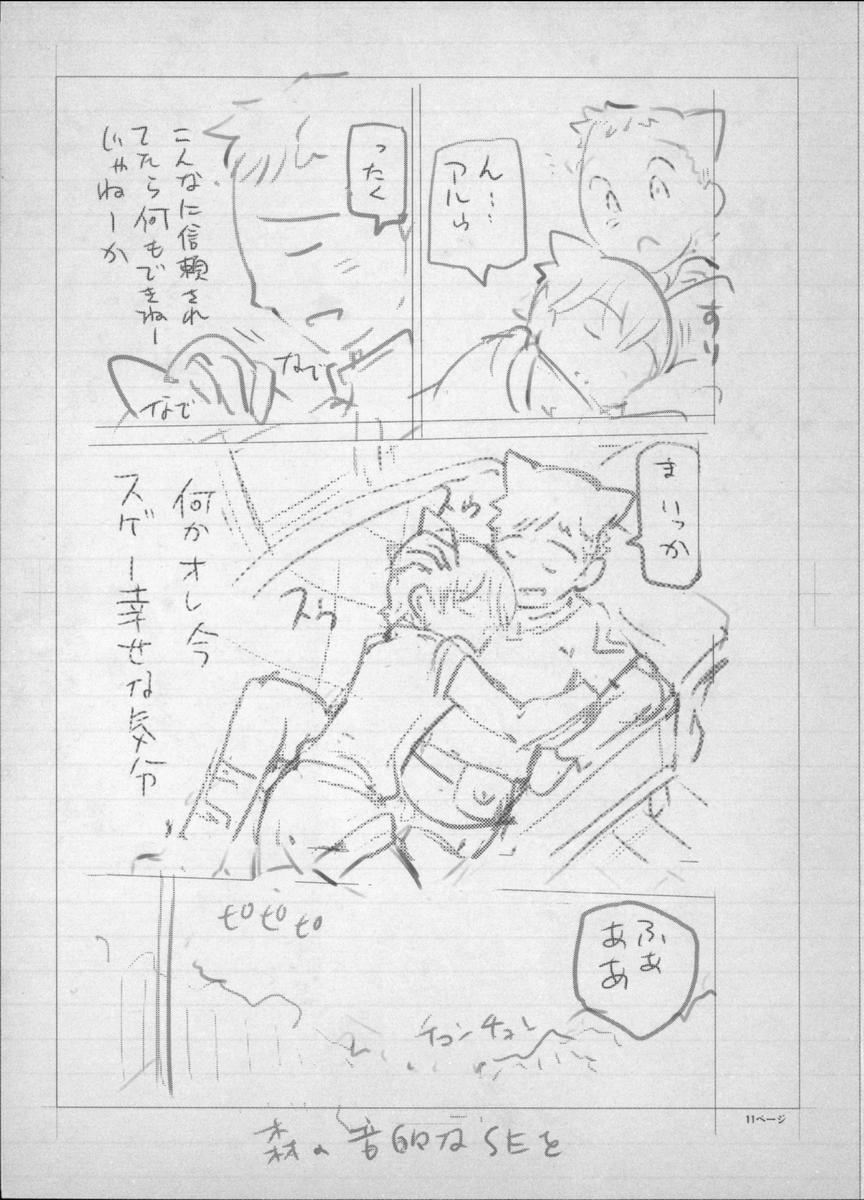 ん…
アルゥ
すり
ったく
こんなに信頼され
てたら何もできねー
じゃねーか
なで
なで
ま いっか
スゥ
スゥ
何かオレ今
スゲー幸せな気分
ふぁ
ああ
ピピピ
チュンチュン
11ページ
森の音的なSEを